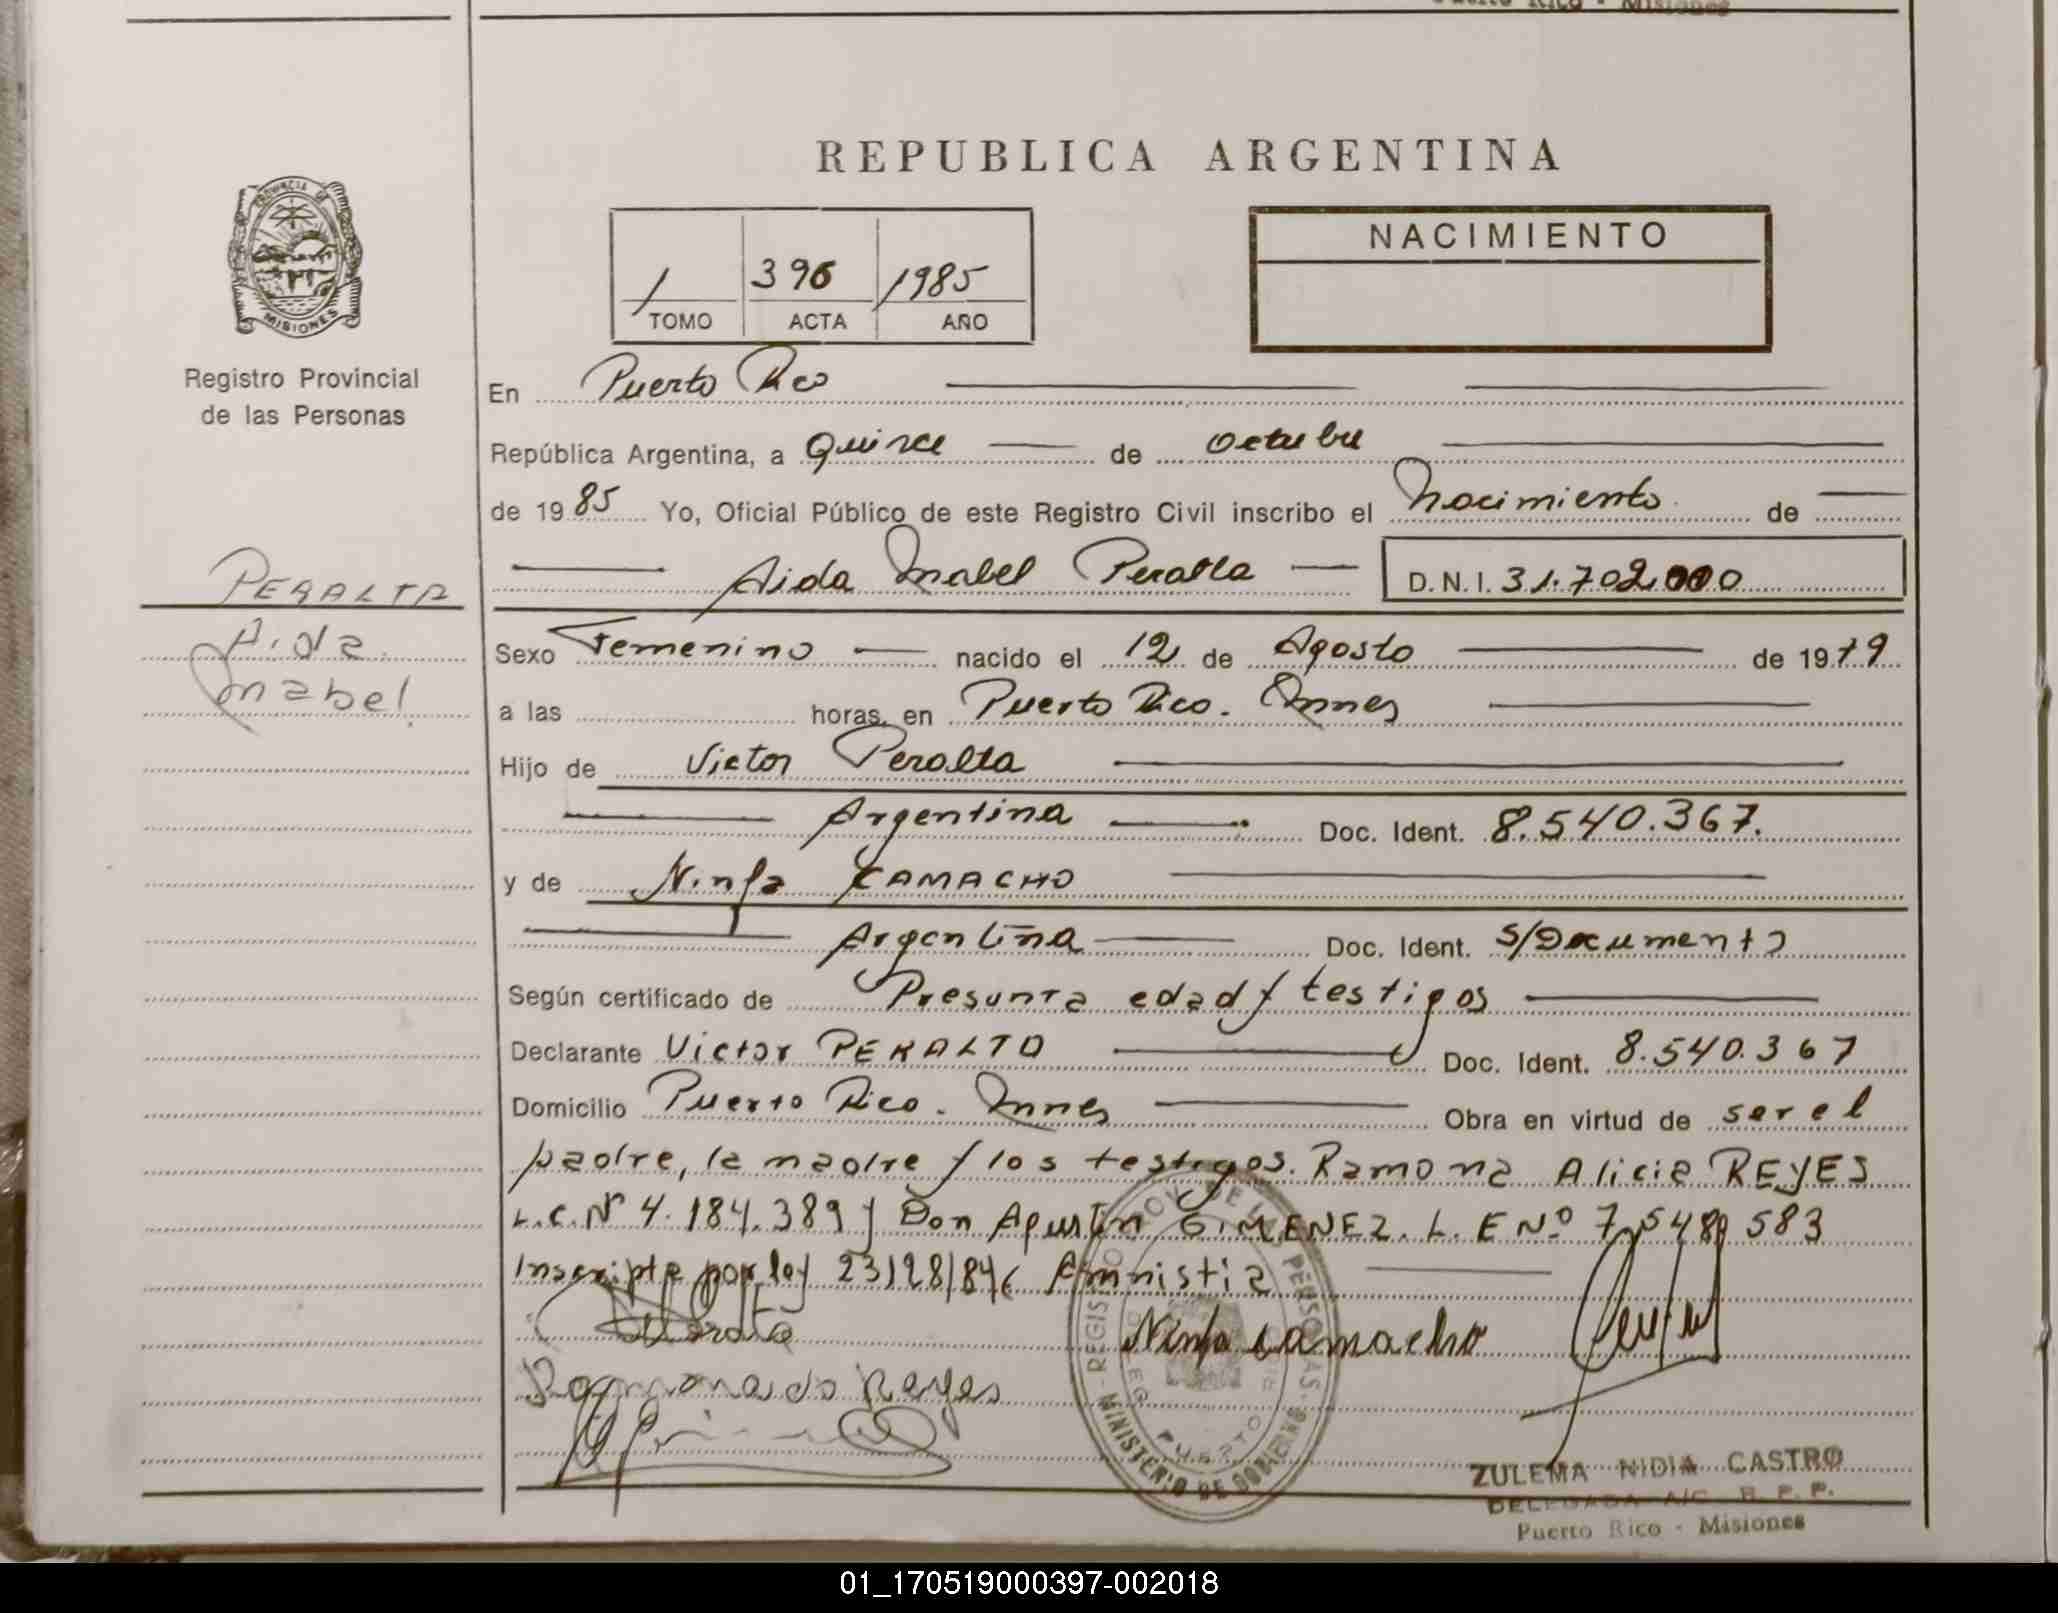 Puerto Rico - Misiones
REPUBLICA ARGENTINA
PROVINCIA DE
MISIONES
Registro Provincial
de las Personas
1 396 1985
TOMO ACTA AÑO
NACIMIENTO
En Puerto Rico
República Argentina, a Quince de octubre
de 1985 Yo, Oficial Público de este Registro Civil inscribo el Nacimiento de
Aida Mabel Peralta D.N.I. 31.702.000
PERALTA
Aida
Mabel.
Sexo Femenino nacido el 12 de Agosto de 1979
a las horas, en Puerto Rico. Mnes
Hijo de Victor Peralta
Argentina Doc. Ident. 8.540.367.
y de Ninfa CAMACHO
Argentina Doc. Ident. S/Documento
Según certificado de Presunta edad y testigos
Declarante Victor PERALTO Doc. Ident. 8.540.367
Domicilio Puerto Rico. Mnes Obra en virtud de ser el
padre, la madre y los testigos. Ramona Alicia REYES
L.C. Nº 4.184.389 y Don Agustin GIMENEZ. L.E Nº 7.548 583
Inscripta por ley 23128/84 Amnistia
Ninfa camacho
Reyes
REGISTRO PROV. DE LAS PERSONAS
MINISTERIO DE GOBIERNO
PUERTO
ZULEMA NIDIA CASTRO
DELEGADA A/C R.P.P.
Puerto Rico - Misiones
01_170519000397-002018